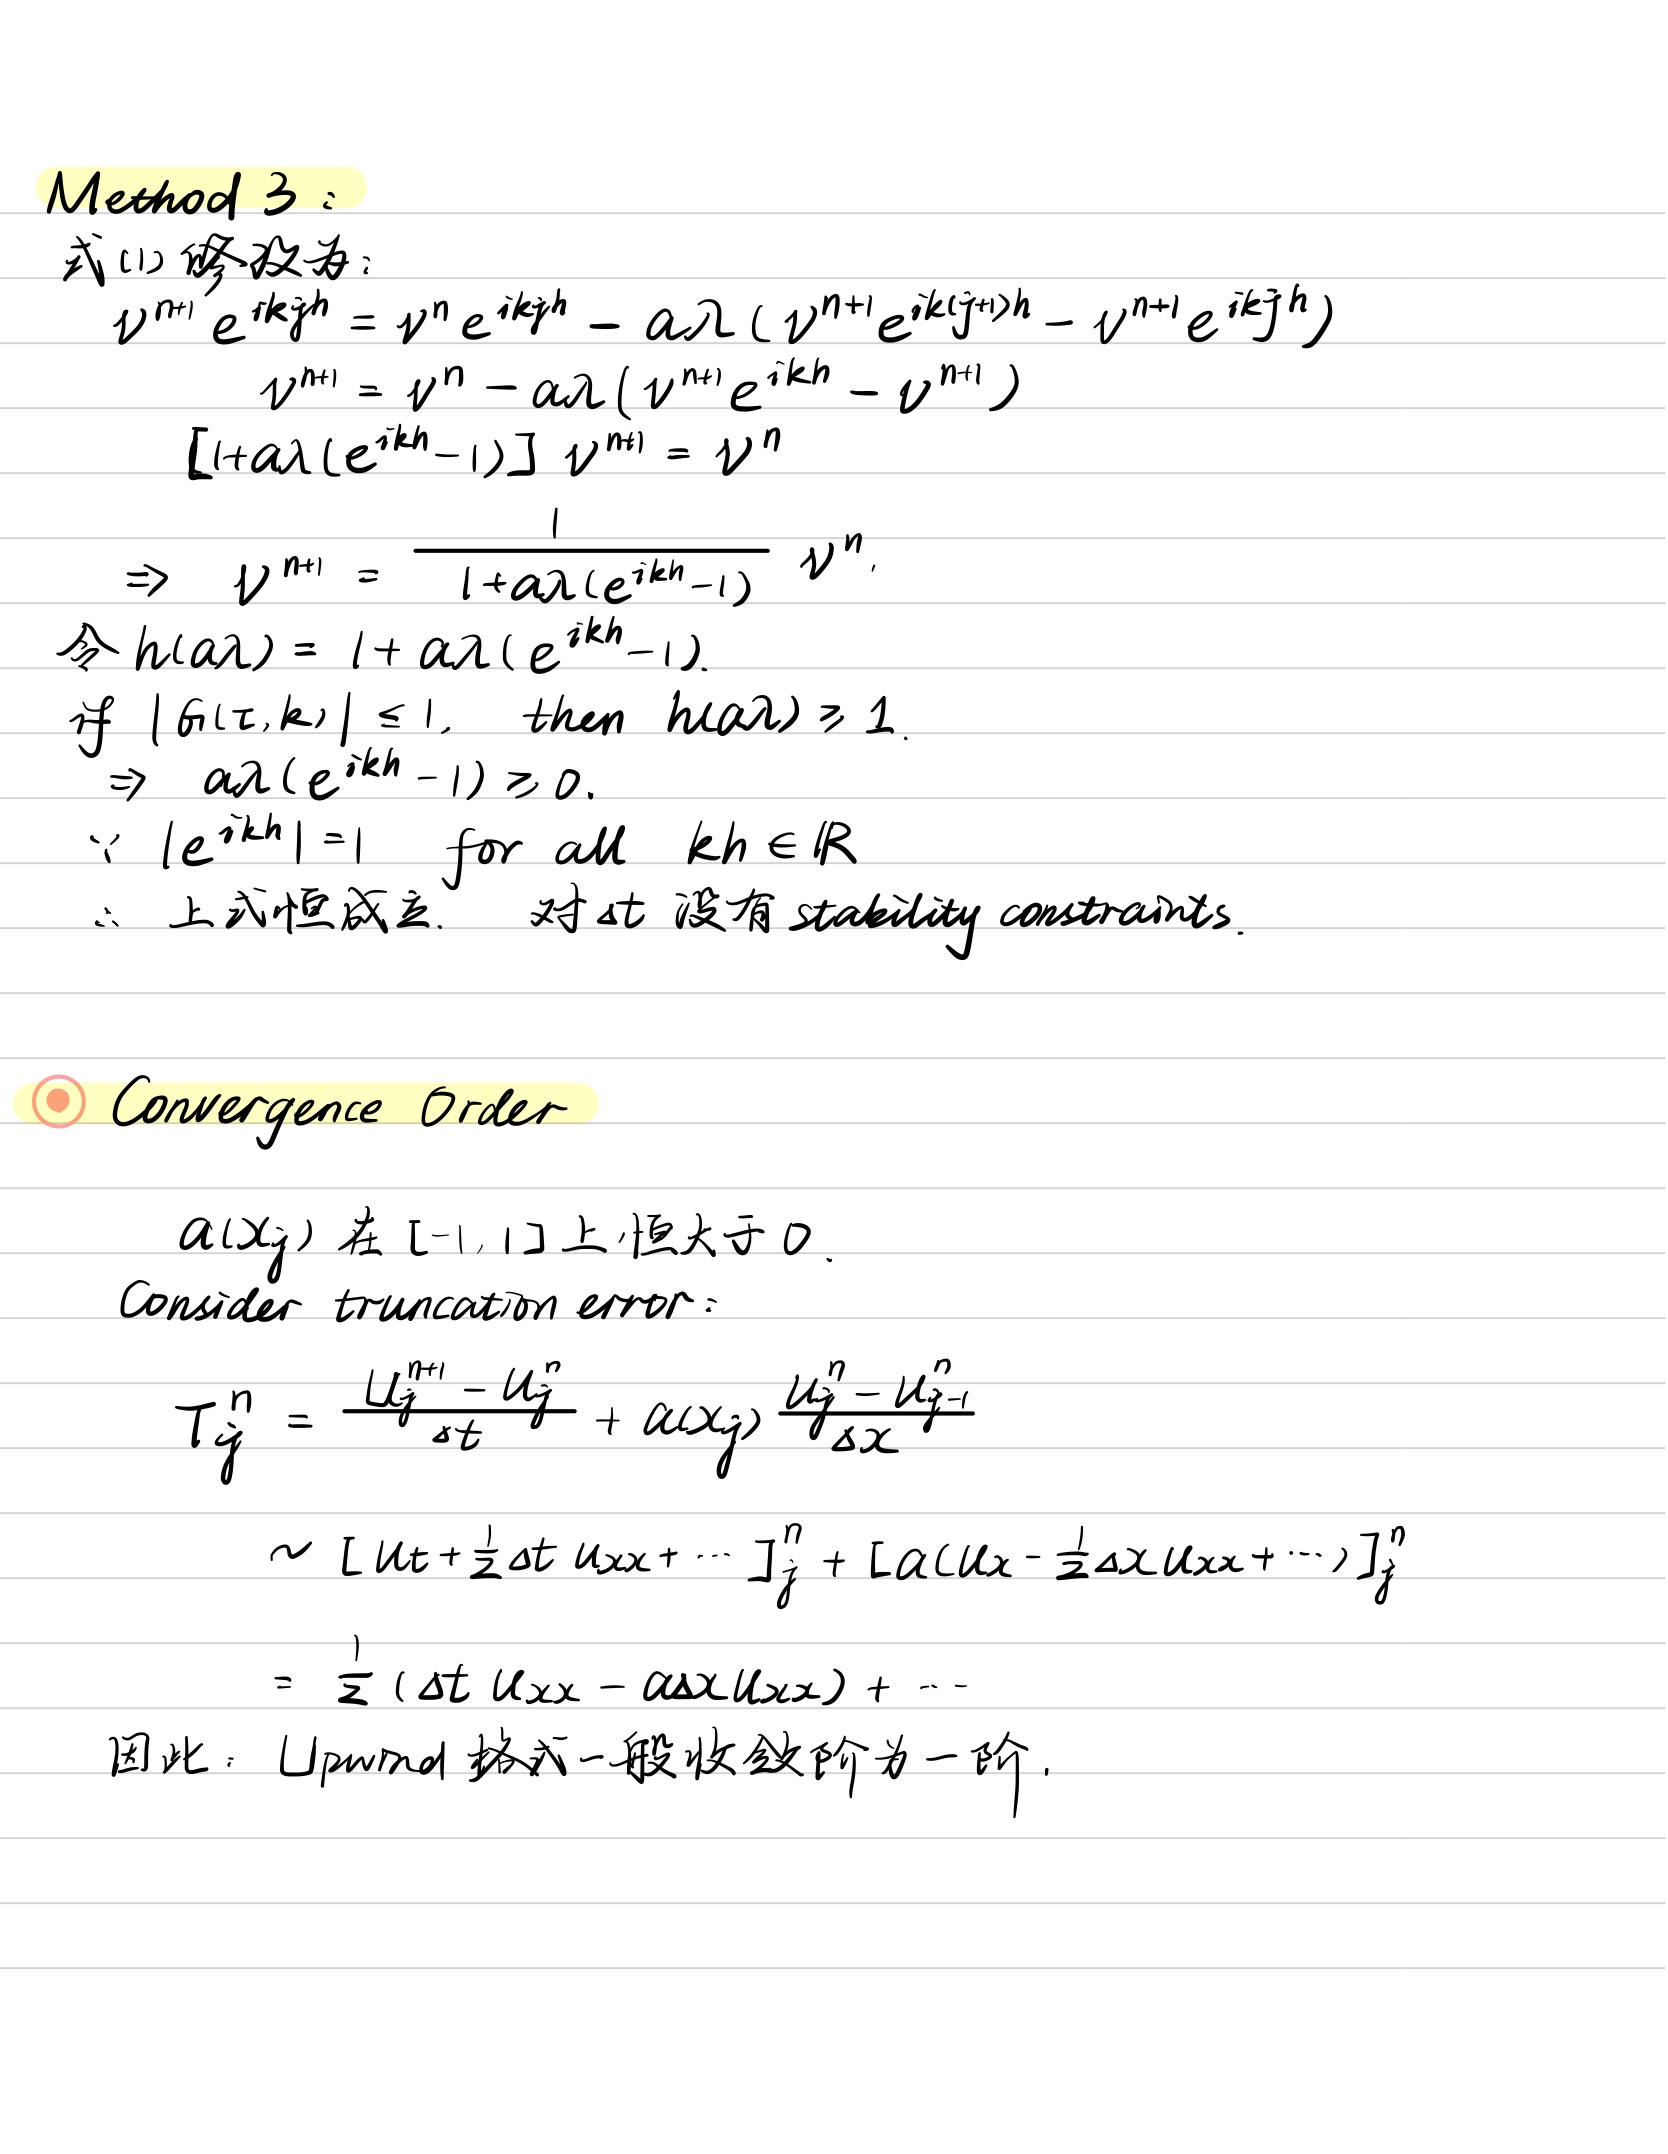 Method 3:
式(1)修改为:
v^{n+1} e^{ikjh} = v^n e^{ikjh} - aλ(v^{n+1} e^{ik(j+1)h} - v^{n+1} e^{ikjh})
v^{n+1} = v^n - aλ(v^{n+1} e^{ikh} - v^{n+1})
[1+aλ(e^{ikh}-1)] v^{n+1} = v^n
⇒ v^{n+1} = \frac{1}{1+aλ(e^{ikh}-1)} v^n.
令 h(aλ) = 1 + aλ(e^{ikh}-1).
if |G(τ,k)| ≤ 1, then h(aλ) ≥ 1.
⇒ aλ(e^{ikh}-1) ≥ 0.
∵ |e^{ikh}| = 1 for all kh ∈ ℝ
∴ 上式恒成立. 对Δt 没有 stability constraints.
Convergence Order
a(x_j) 在 [-1,1] 上恒大于 0.
Consider truncation error:
T_j^n = \frac{U_j^{n+1} - U_j^n}{Δt} + a(x_j) \frac{U_j^n - U_{j-1}^n}{Δx}
~ [U_t + \frac{1}{2} Δt u_{xx} + ...]_j^n + [a(U_x - \frac{1}{2} Δx U_{xx} + ...)]_j^n
= \frac{1}{2} (Δt U_{xx} - aΔx U_{xx}) + ...
因此: Upwind 格式一般收敛阶为一阶.